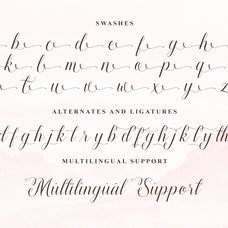 SWASHES
b c d e f g h
k l m n o p q
t u v w x y z
ALTERNATES AND LIGATURES
d f g h j k l r y b d f g h j k f y th
MULTILINGUAL SUPPORT
Multilingual Support